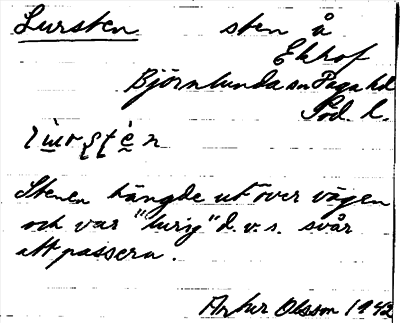 Lursten sten å
Ekhof
Björnlunda sn Daga hd
Söd. l.
Stenen hängde ut över vägen
och var "lurig" d.v.s. svår
att passera.
Arthur Olsson 1942